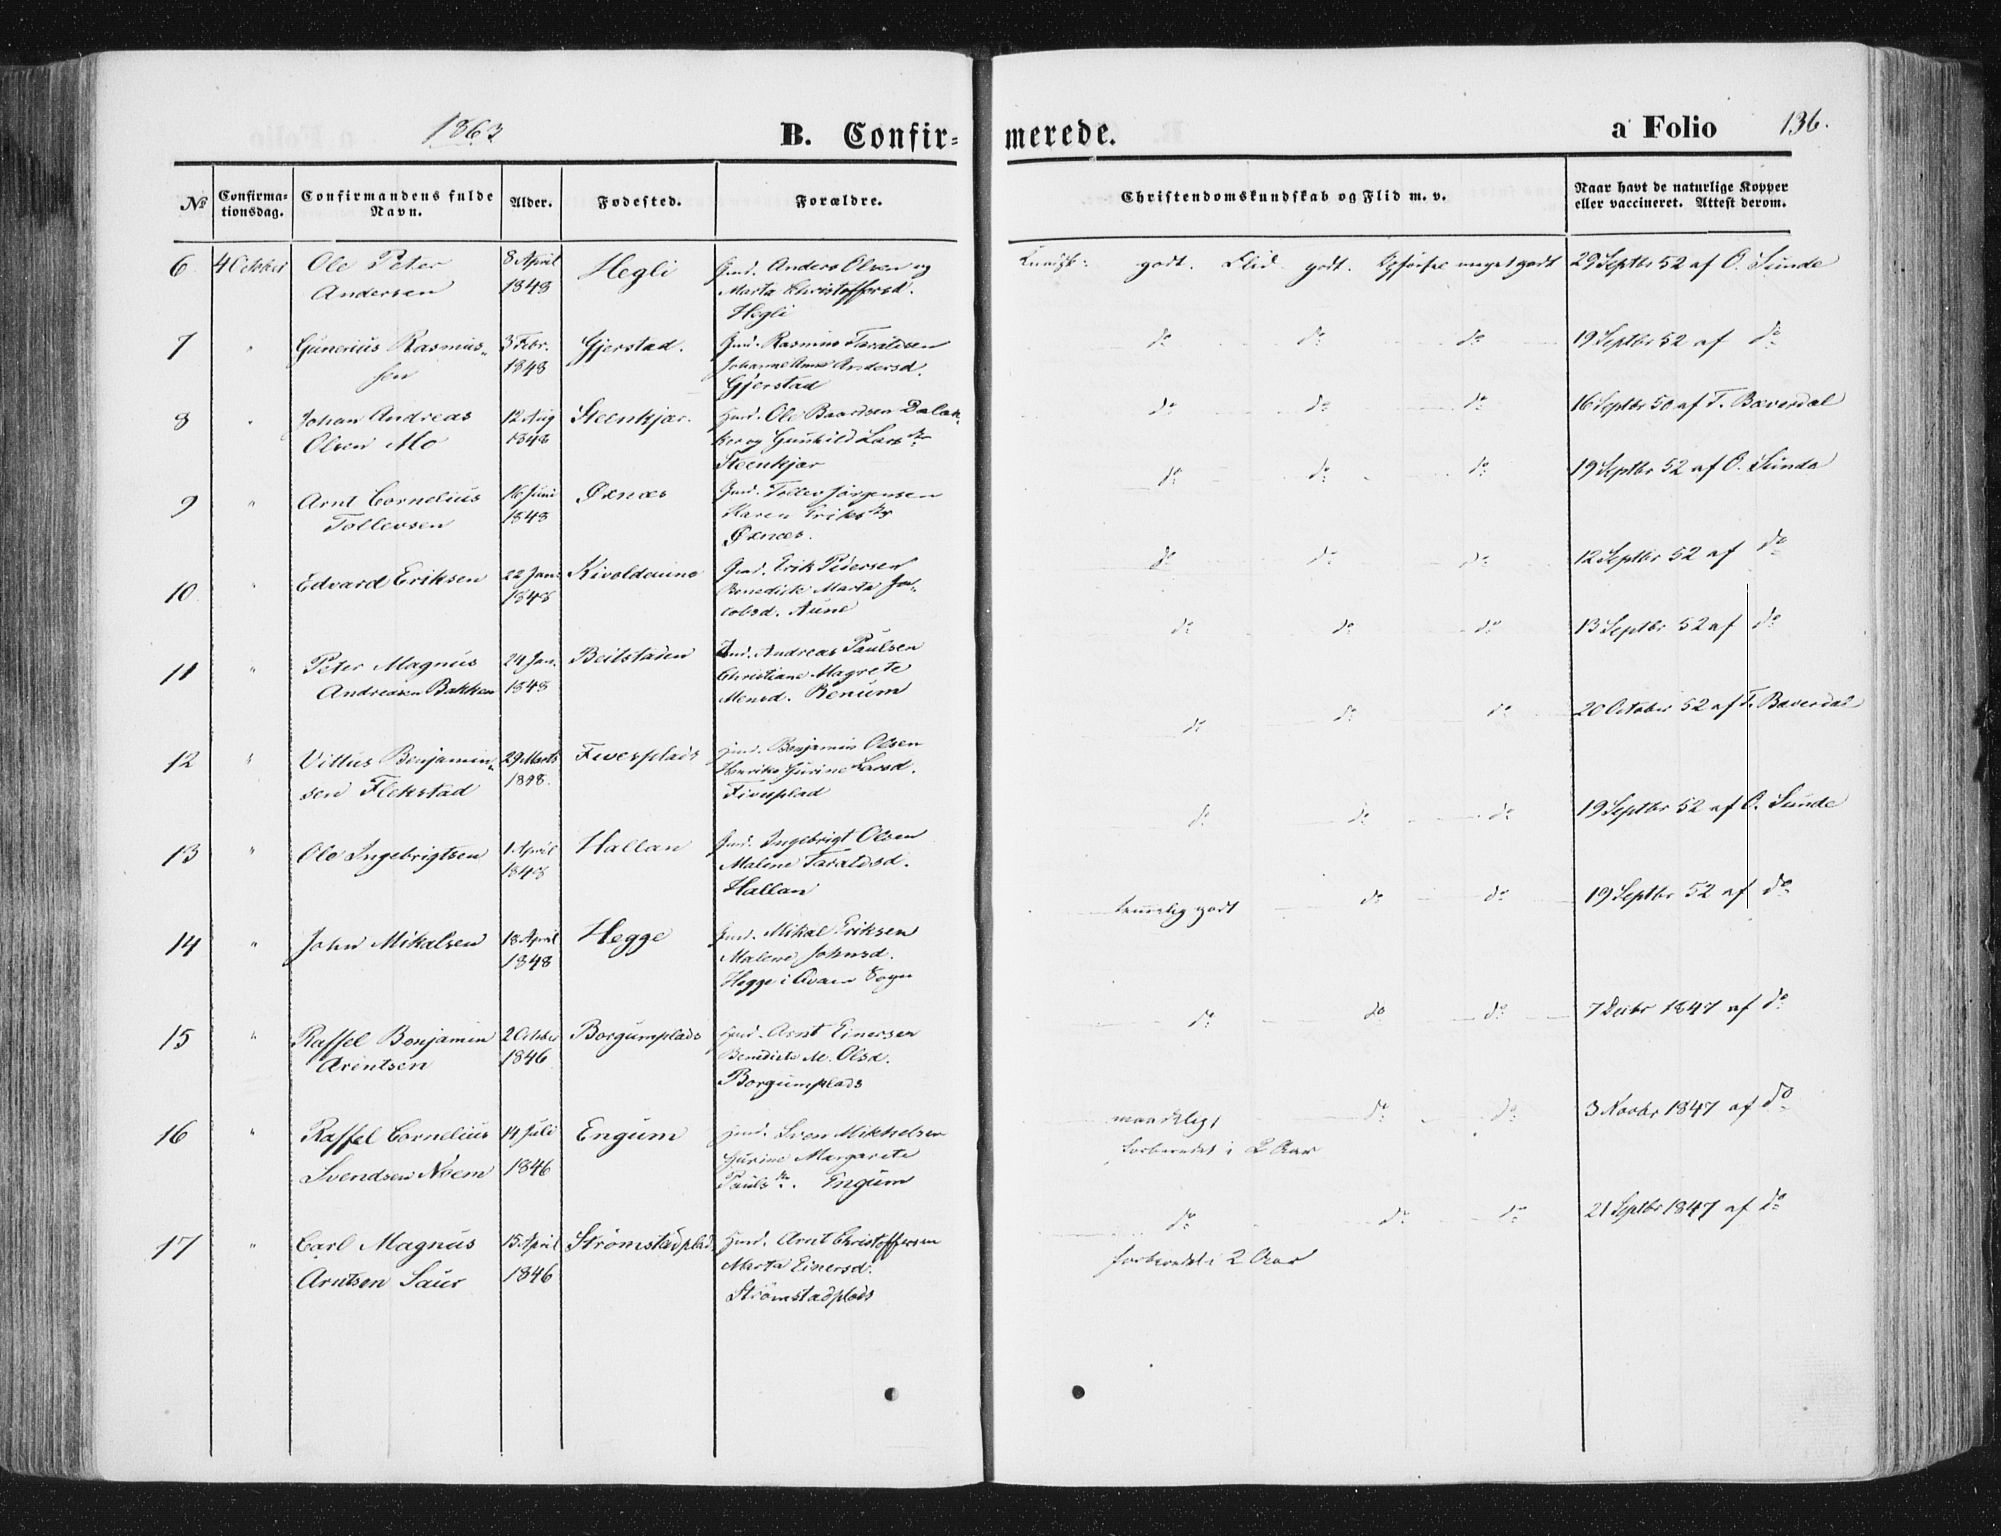 1863 B. Confirmerede. a Folio 136.
№ Confirmationsdag. Confirmandens fulde Navn. Alder. Fødested. Forældre. Christendomskundskab og Flid m. v. Naar havt de naturlige Kopper eller vaccineret. Attest derom.
6 4 October Ole Peter 8 April Hegli Gmd. Anders Olsen og Kundsk: godt. Flid godt. Opførsel meget godt 29 Septbr 52 af O. Sunde
Andersen 1848 Marta Christoffersd.
Hegli
7 " Gunerius Rasmus- 3 Febr. Gjerstad. Gmd. Rasmus Taraldsen do do do 19 Septbr 52 af do
sen 1848 Johanna Andersd.
Gjerstad
8 " Johan Andreas 12 Aug Steenkjær. Hmd. Ole Baardsen do do do 16 Septbr 50 af T. Bæverdal
Olsen Mo 1848 og Gunhild Larsdr
Steenkjær
9 " Arnt Cornelius 16 Juni Øxnæs Gmd. Tollev Jørgensen do do do 19 Septbr 52 af O. Sunde
Tollevsen 1848 Karen Eriksdr
Øxnæs.
10 " Edvard Eriksen 22 Jan. Kivoldaune Gmd. Erik Pedersen do do do 12 Septbr 52 af do
1848 Benedicte Marta Ja-
cobsd. Aune
11 " Peter Magnus 24 Jan. Beitstaden Ind. Andreas Paulsen do do do 13 Septbr 52 af do
Andreasen Bakken 1848 Christiane Magrete
Monsd. Benum
12 " Vittus Benjamin- 29 Marts Fivesplads Hmd. Benjamin Olsen do do do 20 October 52 af T. Bæverdal
sen Flekstad 1848. Gurine Larsd.
Fivesplad
13 " Ole Ingebrigtsen 1 April Hallan Gmd. Ingebrigt Olsen do do do 19 Septbr 52 af O. Sunde
1848 Malene Taraldsd.
Hallan
14 " John Mikalsen 18 April Hegge Gmd. Mikal Eriksen temmelig godt do do 19 Septbr 52 af do
1848 Malene Johnsd.
Hegge i Qvam Sogn
15 " Raffel Benjamin 2 October Borgumplads Hmd. Arnt Einersen do do do 7 Decbr 1847 af do
Arentsen 1846 Benedicte M. Olsd.
Borgumplads
16 " Raffel Cornelius 14 Juli Engum Hmd. Sven Mikkelsen maadelig do do 3 Novbr 1847 af do
Svendsen Noem 1846 Gurine Margarete forberedet i 2 Aar
Paulsdr. Engum
17 " Carl Magnus 15 April Strømstadplad. Hmd. Arnt Christoffersen do do do 21 Septbr 1847 af do
Arntsen Saur 1846 Marta Einersd. forberedet i 2 Aar
Strømstadplads